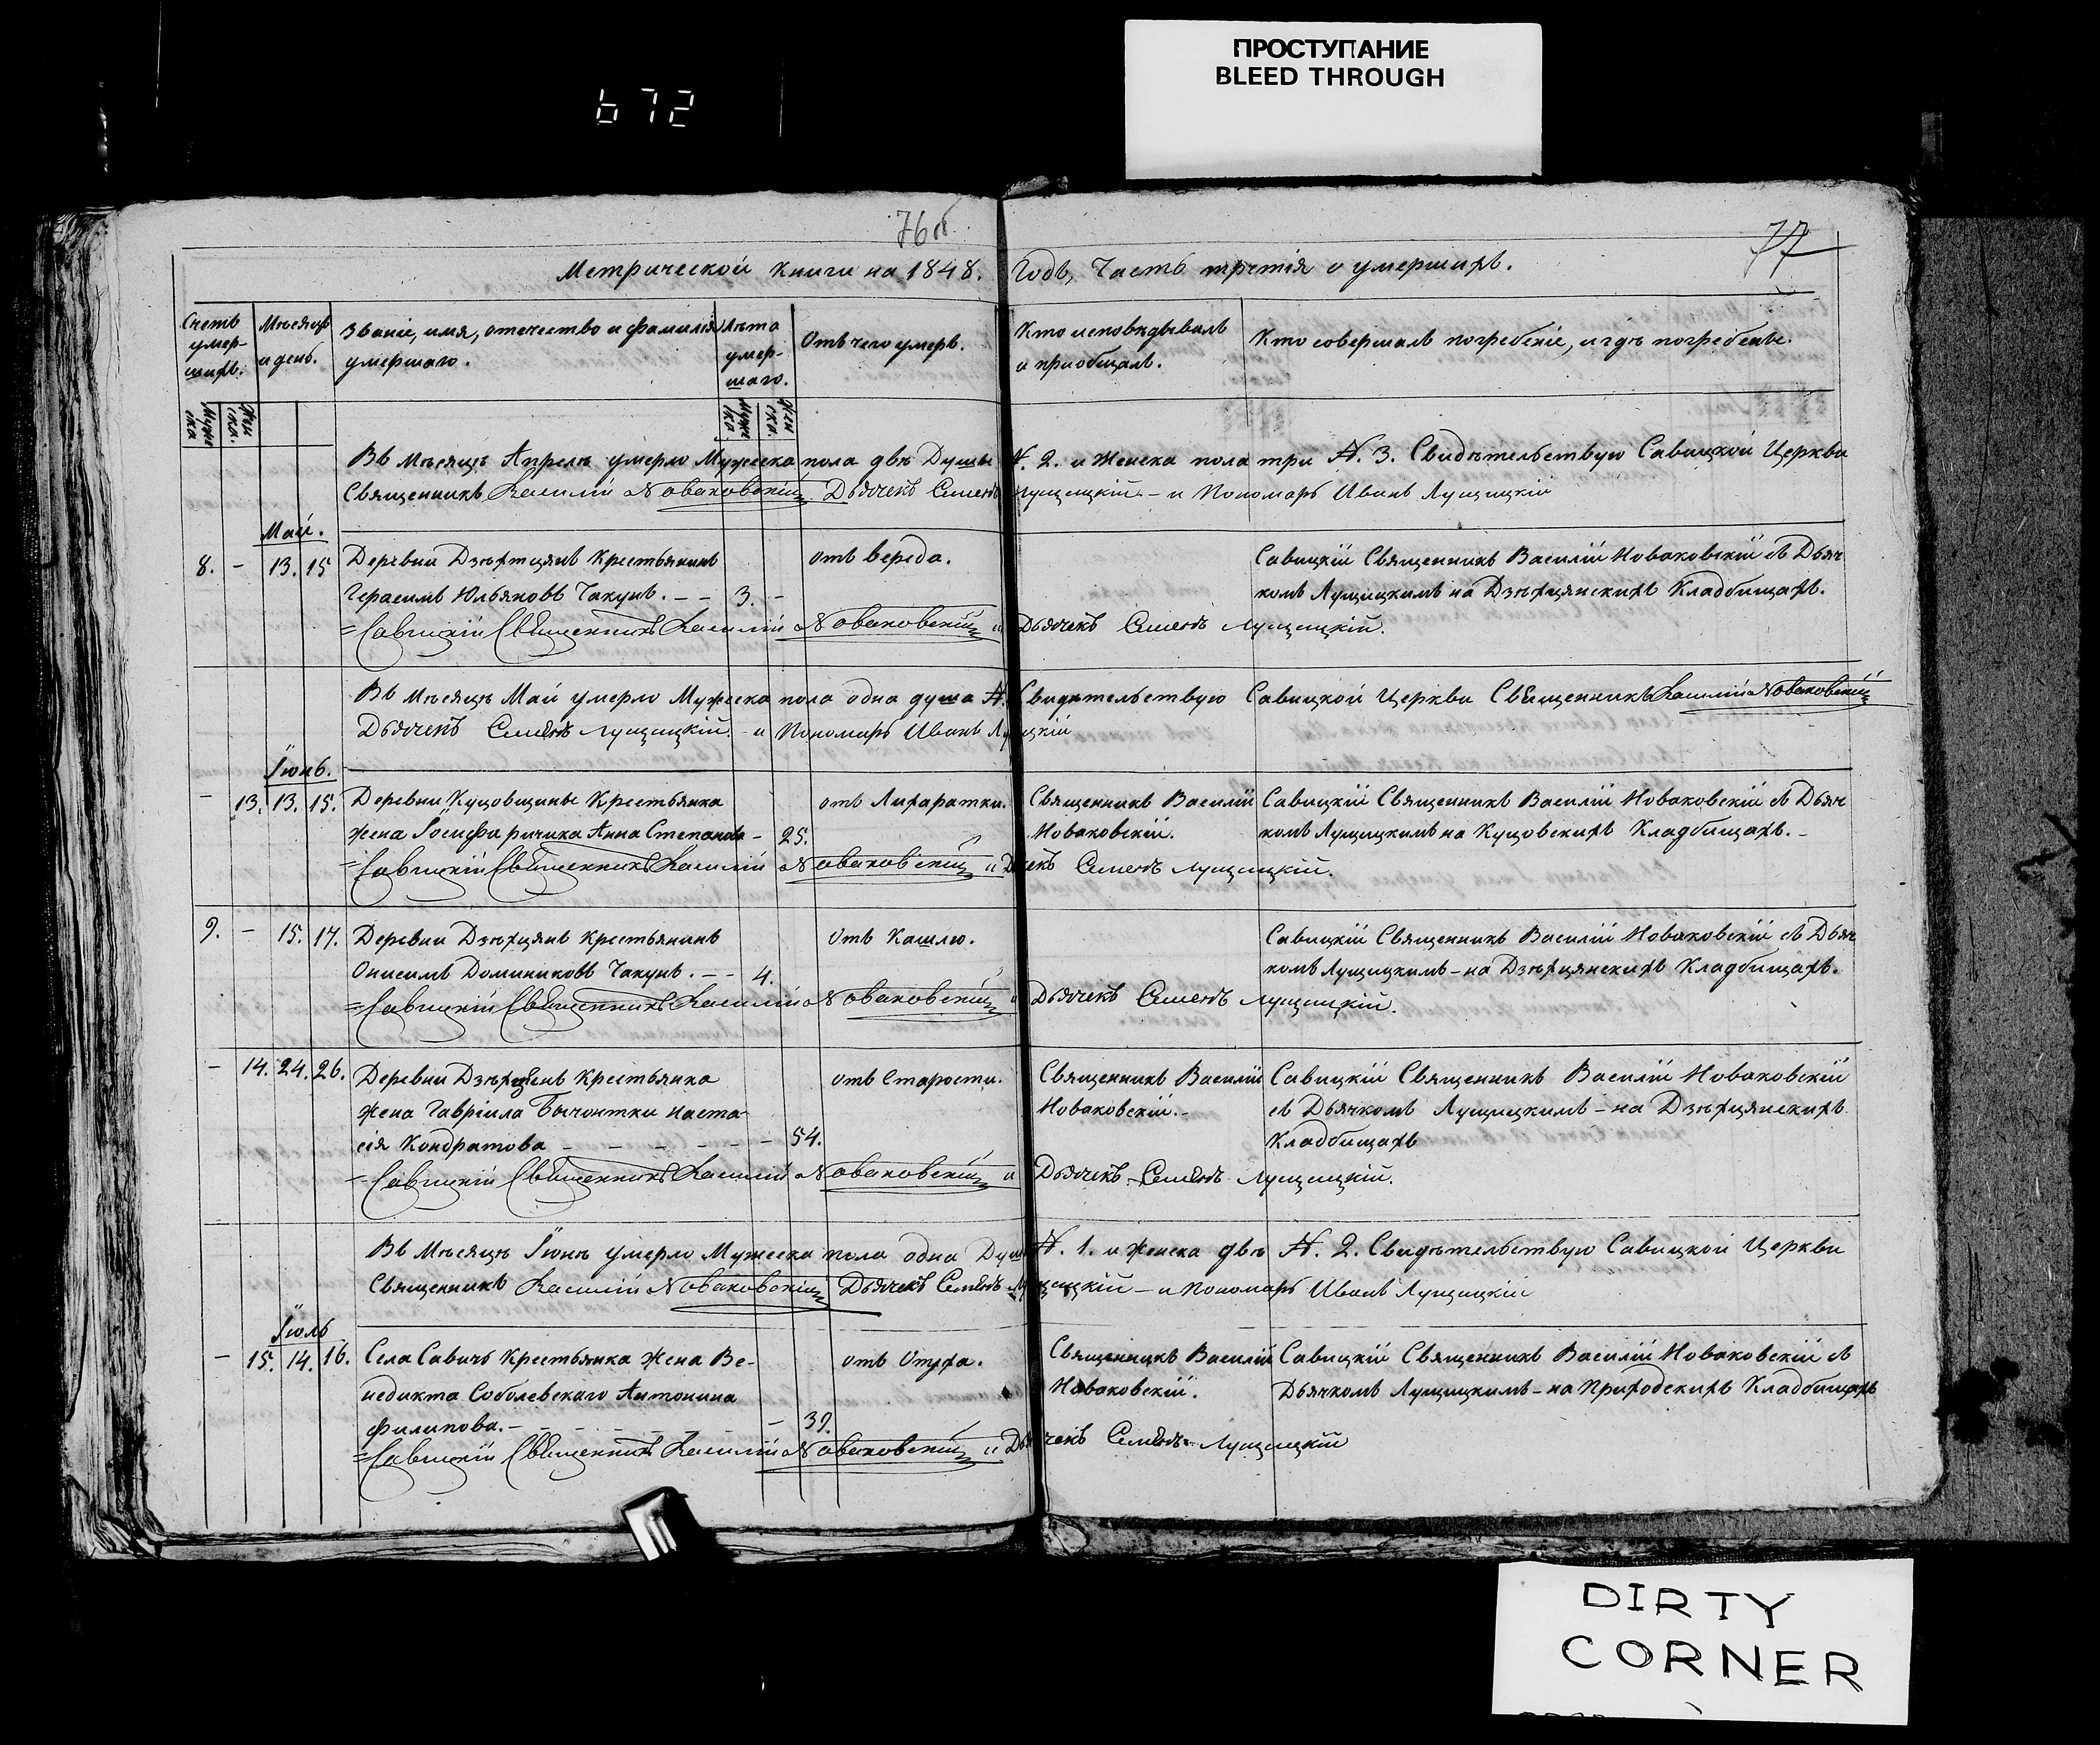 ПРОСТУПАНИЕ
BLEED THROUGH
672
76б
77
Метрической книги на 1848. Годъ, Часть третія о умершихъ.
Счетъ умер-шихъ.
Мѣсяцъ и день.
Званіе, имя, отечество и фамилія умершаго.
Лѣта умер-шаго.
Отъ чего умеръ.
Кто исповѣдывалъ и пріобщалъ.
Кто совершалъ погребеніе, и гдѣ погребены.
Муже ска
Жен ска.
Муже ска
Жен ска.
Въ Мѣсяцѣ Апрелѣ умерло Мужеска пола двѣ Душы N. 2. и Женска пола три N. 3. Свидѣтельствую Савицкой Церкви
Священникъ Василій Новаковскій Дьячекъ Семенъ Лущицкій – и Пономарь Иванъ Лущицкій
Май.
8. - 13. 15 Деревни Дзѣхтцянъ Крестьянинъ отъ вереда. Савицкій Священникъ Василій Новаковскій съ Дьяч
Герасимъ Юльяновъ Чакунъ. – – 3. – комъ Лущицкимъ на Дзѣхцянскихъ Кладбищахъ.
=Савицкій Священникъ Василій Новаковскій и Дьячекъ Семенъ Лущицкій.
Въ Мѣсяцѣ Май умерло Мужеска пола одна душа N. Свидѣтельствую Савицкой Церкви Священникъ Василій Новаковскій
Дьячекъ Семенъ Лущицкій – и Пономарь Иванъ Лущицкій
Іюнь.
- 13. 13. 15. Деревни Куцовщины Крестьянка отъ Лихаратки. Священникъ Василій Савицкій Священникъ Василій Новаковскій съ Дьяч
жена Іосифа ричика Анна Степанова – 25. Новаковскій. комъ Лущицкимъ на Куцовскихъ Кладбищахъ. –
=Савицкій Священникъ Василій Новаковскій и Дьячекъ Семенъ Лущицкій.
9. - 15. 17. Деревни Дзѣхцянъ Крестьянинъ отъ Кашлю. Савицкій Священникъ Василій Новаковскій съ Дьяч
Онисимъ Доминиковъ Чакунъ. – – 4. комъ Лущицкимъ – на Дзѣхцянскихъ Кладбищахъ.
=Савицкій Священникъ Василій Новаковскій и Дьячекъ Семенъ Лущицкій.
- 14. 24. 26. Деревни Дзѣхцянъ Крестьянка отъ Старости. Священникъ Василій Савицкій Священникъ Василій Новаковскій
жена Гавріила Бычонтки Наста- Новаковскій. – съ Дьячкомъ Лущицкимъ – на Дзѣхцянскихъ
сія Кондратова – – – – – – – 54. Кладбищахъ
=Савицкій Священникъ Василій Новаковскій и Дьячекъ Семенъ Лущицкій.
Въ Мѣсяцѣ Іюнѣ умерло Мужеска пола одна Душа N. 1. и Женска двѣ N. 2. Свидѣтельствую Савицкой Церкви
Священникъ Василій Новаковскій Дьячекъ Семенъ Лущицкій – и Пономарь Иванъ Лущицкій
Іюль
- 15. 14. 16. Села Савичь Крестьянка Жена Ве- отъ Опуха. Священникъ Василій Савицкій Священникъ Василій Новаковскій съ
недикта Соболевскаго Антонина Новаковскій. Дьячкомъ Лущицкимъ – на Приходскихъ Кладбищахъ
Филипова. – – 39.
=Савицкій Священникъ Василій Новаковскій и Дьячекъ Семенъ Лущицкій
DIRTY
CORNER